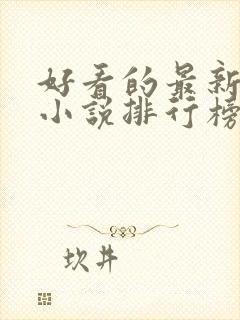 好看的最新
小说排行榜
坎井